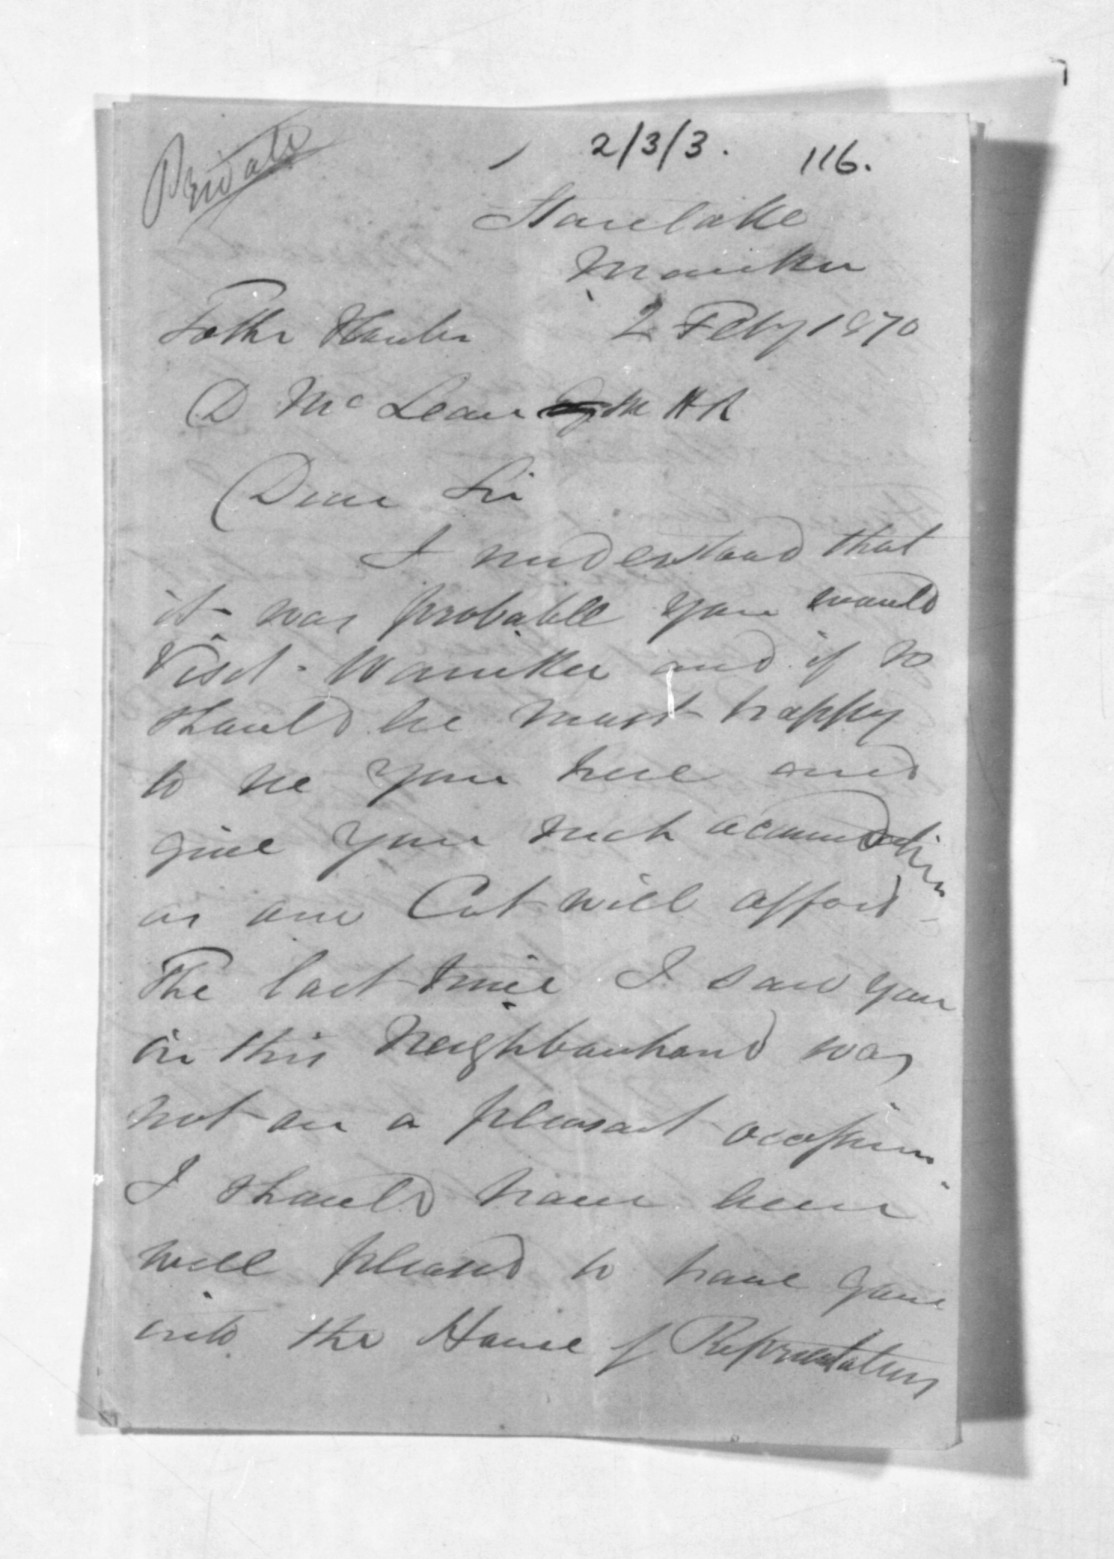 Private
2/3/3. 116.
Stanlake
Waniku
2 Feby 1870
D McLean M H R
Dear Sir
I understand that
it was probable you would
visit Waniku and if so
should be most happy
to see you here and
give you such accomodation
as our Cot will afford
The last time I saw you
in this Neighbourhood was
not on a pleasant occasion.
I should have been
well pleased to have gone
into the House of Representatives